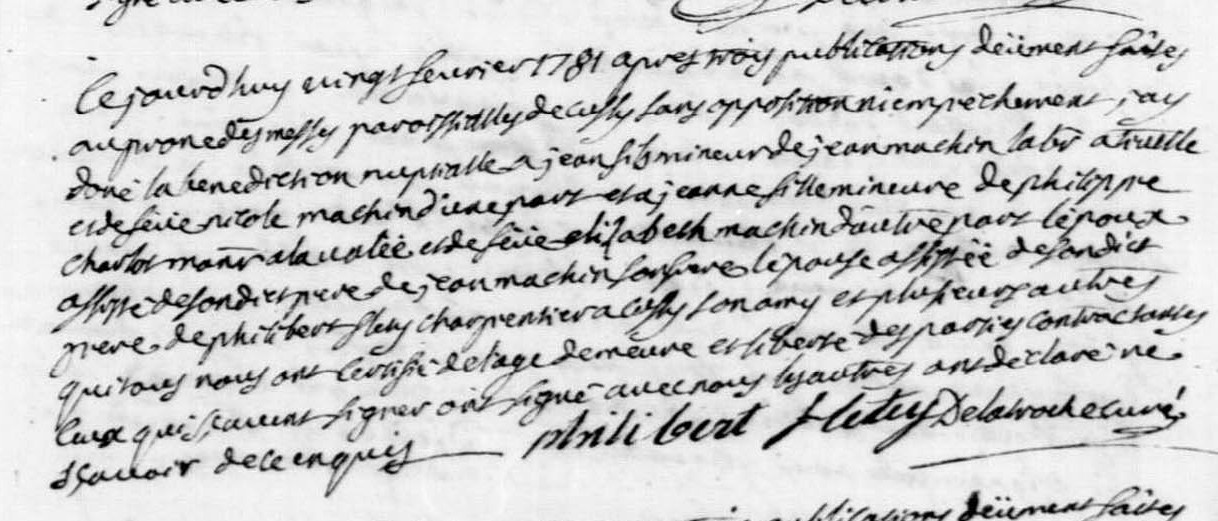 Lejourdhuy vingt fevrier 1781 apres trois publications deüement faites
au prone des messes paroissialles de cussy sans opposition ni empechement j'ay
doné la benediction nuptialle a jean fils mineur de jean machin labr a
et de feüe nicole machin d'une part et a jeanne fille mineure de philippe
charlot manr a la valée et de feüe elizabeth machin d'autre part l'époux
assisté de son dict pere de jean machin son frere l'épouse assistée de son dict
pere de philibert flety charpentier a cussy son amy et plusieurs autres
qui tous nous ont certifié de l'age demeure et liberté des parties contractantes
ceux qui sçavent signer ont signé avec nous les autres ont déclaré ne
sçavoir de ce enquis
philibert flety Delaroche curé
publications deüement faites